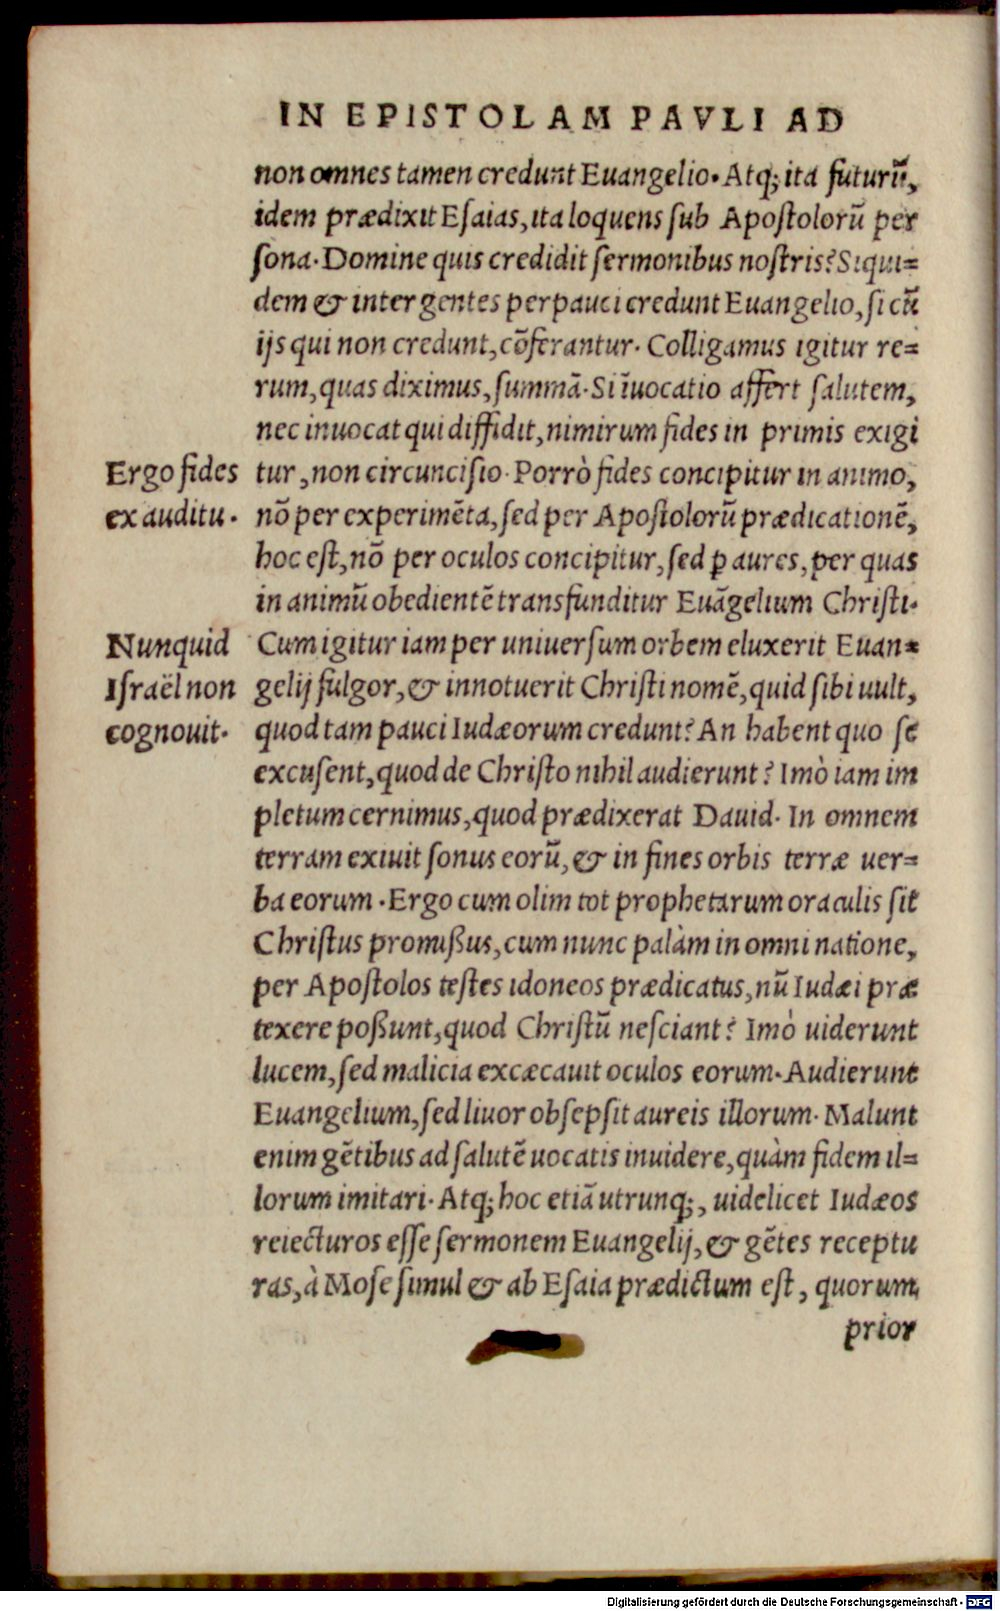 IN EPISTOLAM PAVLI AD
non omnes tamen credunt Euangelio. Atq; ita futurũ,
idem prædixit Esaias, ita loquens sub Apostolorũ per
sona. Domine quis credidit sermonibus nostris? Siqui=
dem & inter gentes perpauci credunt Euangelio, si cũ
ijs qui non credunt, cõferantur. Colligamus igitur re=
rum, quas diximus, summã. Si ĩuocatio affert salutem,
nec inuocat qui diffidit, nimirum fides in primis exigi
Ergo fides
ex auditu.
tur, non circuncisio. Porrò fides concipitur in animo,
nõ per experimẽta, sed per Apostolorũ prædicationẽ,
hoc est, nõ per oculos concipitur, sed ꝑ aures, per quas
in animũ obedientẽ transfunditur Euãgelium Christi.
Nunquid
Israël non
cognouit.
Cum igitur iam per uniuersum orbem eluxerit Euan=
gelij fulgor, & innotuerit Christi nomẽ, quid sibi uult,
quod tam pauci Iudæorum credunt? An habent quo se
excusent, quod de Christo nihil audierunt? Imò iam im
pletum cernimus, quod prædixerat Dauid. In omnem
terram exiuit sonus eorũ, & in fines orbis terræ uer=
ba eorum. Ergo cum olim tot prophetarum oraculis sit
Christus promißus, cum nunc palàm in omni natione,
per Apostolos testes idoneos prædicatus, nũ Iudæi præ
texere poßunt, quod Christũ nesciant? Imò uiderunt
lucem, sed malicia excæcauit oculos eorum. Audierunt
Euangelium, sed liuor obsepsit aureis illorum. Malunt
enim gẽtibus ad salutẽ uocatis inuidere, quàm fidem il=
lorum imitari. Atq; hoc etiã utrunq;, uidelicet Iudæos
reiecturos esse sermonem Euangelij, & gẽtes receptu
ras, à Mose simul & ab Esaia prædictum est, quorum
prior
Digitalisierung gefördert durch die Deutsche Forschungsgemeinschaft - DFG